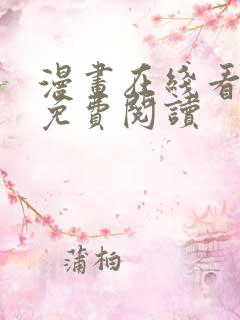 漫畫在綫看
免費閱讀
蒲柏